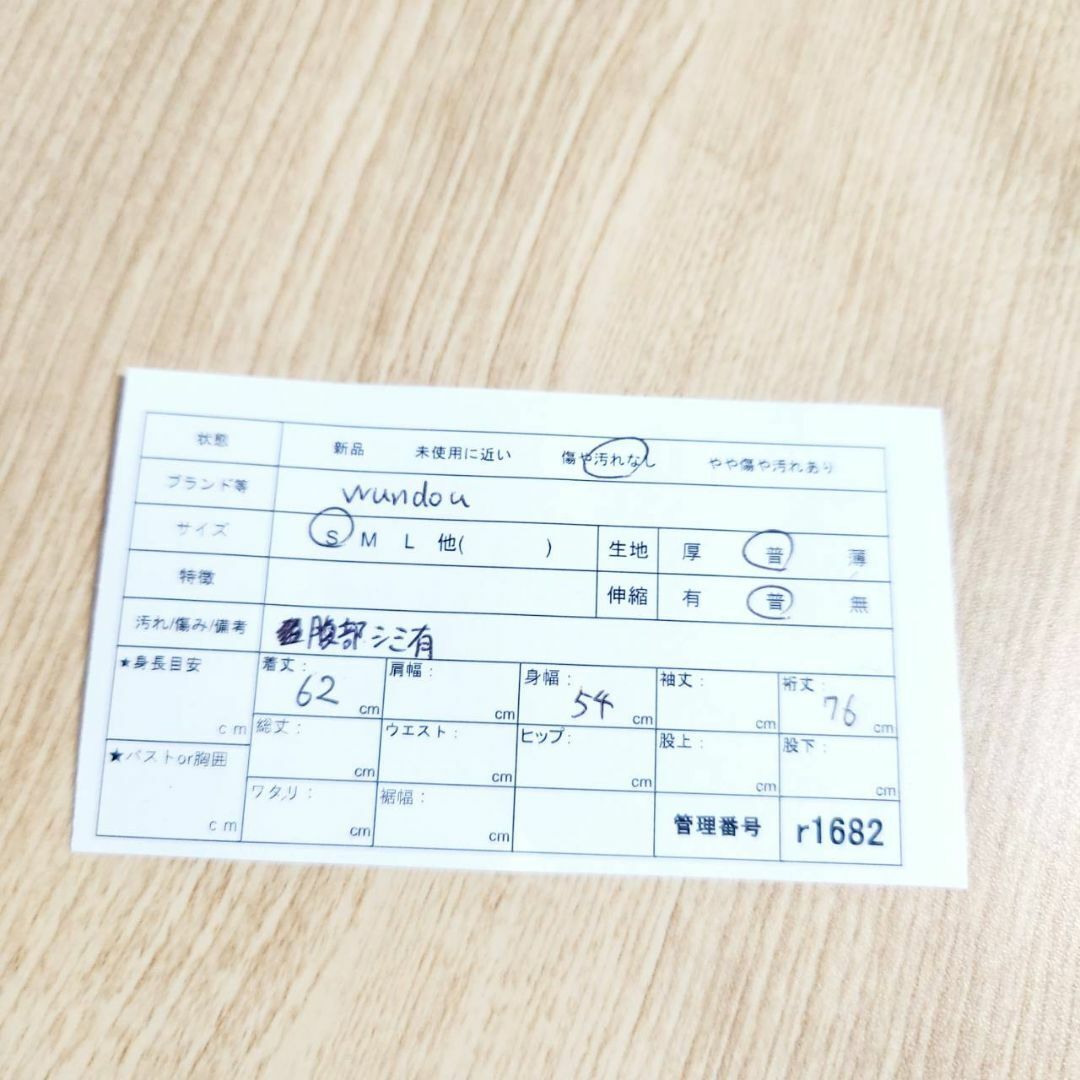 状態 新品 未使用に近い 傷や汚れなし やや傷や汚れあり
ブランド等 wundou
サイズ S M L 他( ) 生地 厚 普 薄
特徴 伸縮 有 普 無
汚れ/傷み/備考 腹部シミ有
★身長目安 cm 着丈: 62 cm 肩幅: cm 身幅: 54 cm 袖丈: cm 裄丈: 76 cm
総丈: cm ウエスト: cm ヒップ: cm 股上: cm 股下: cm
★バストor胸囲 cm ワタリ: cm 裾幅: cm 管理番号 r1682